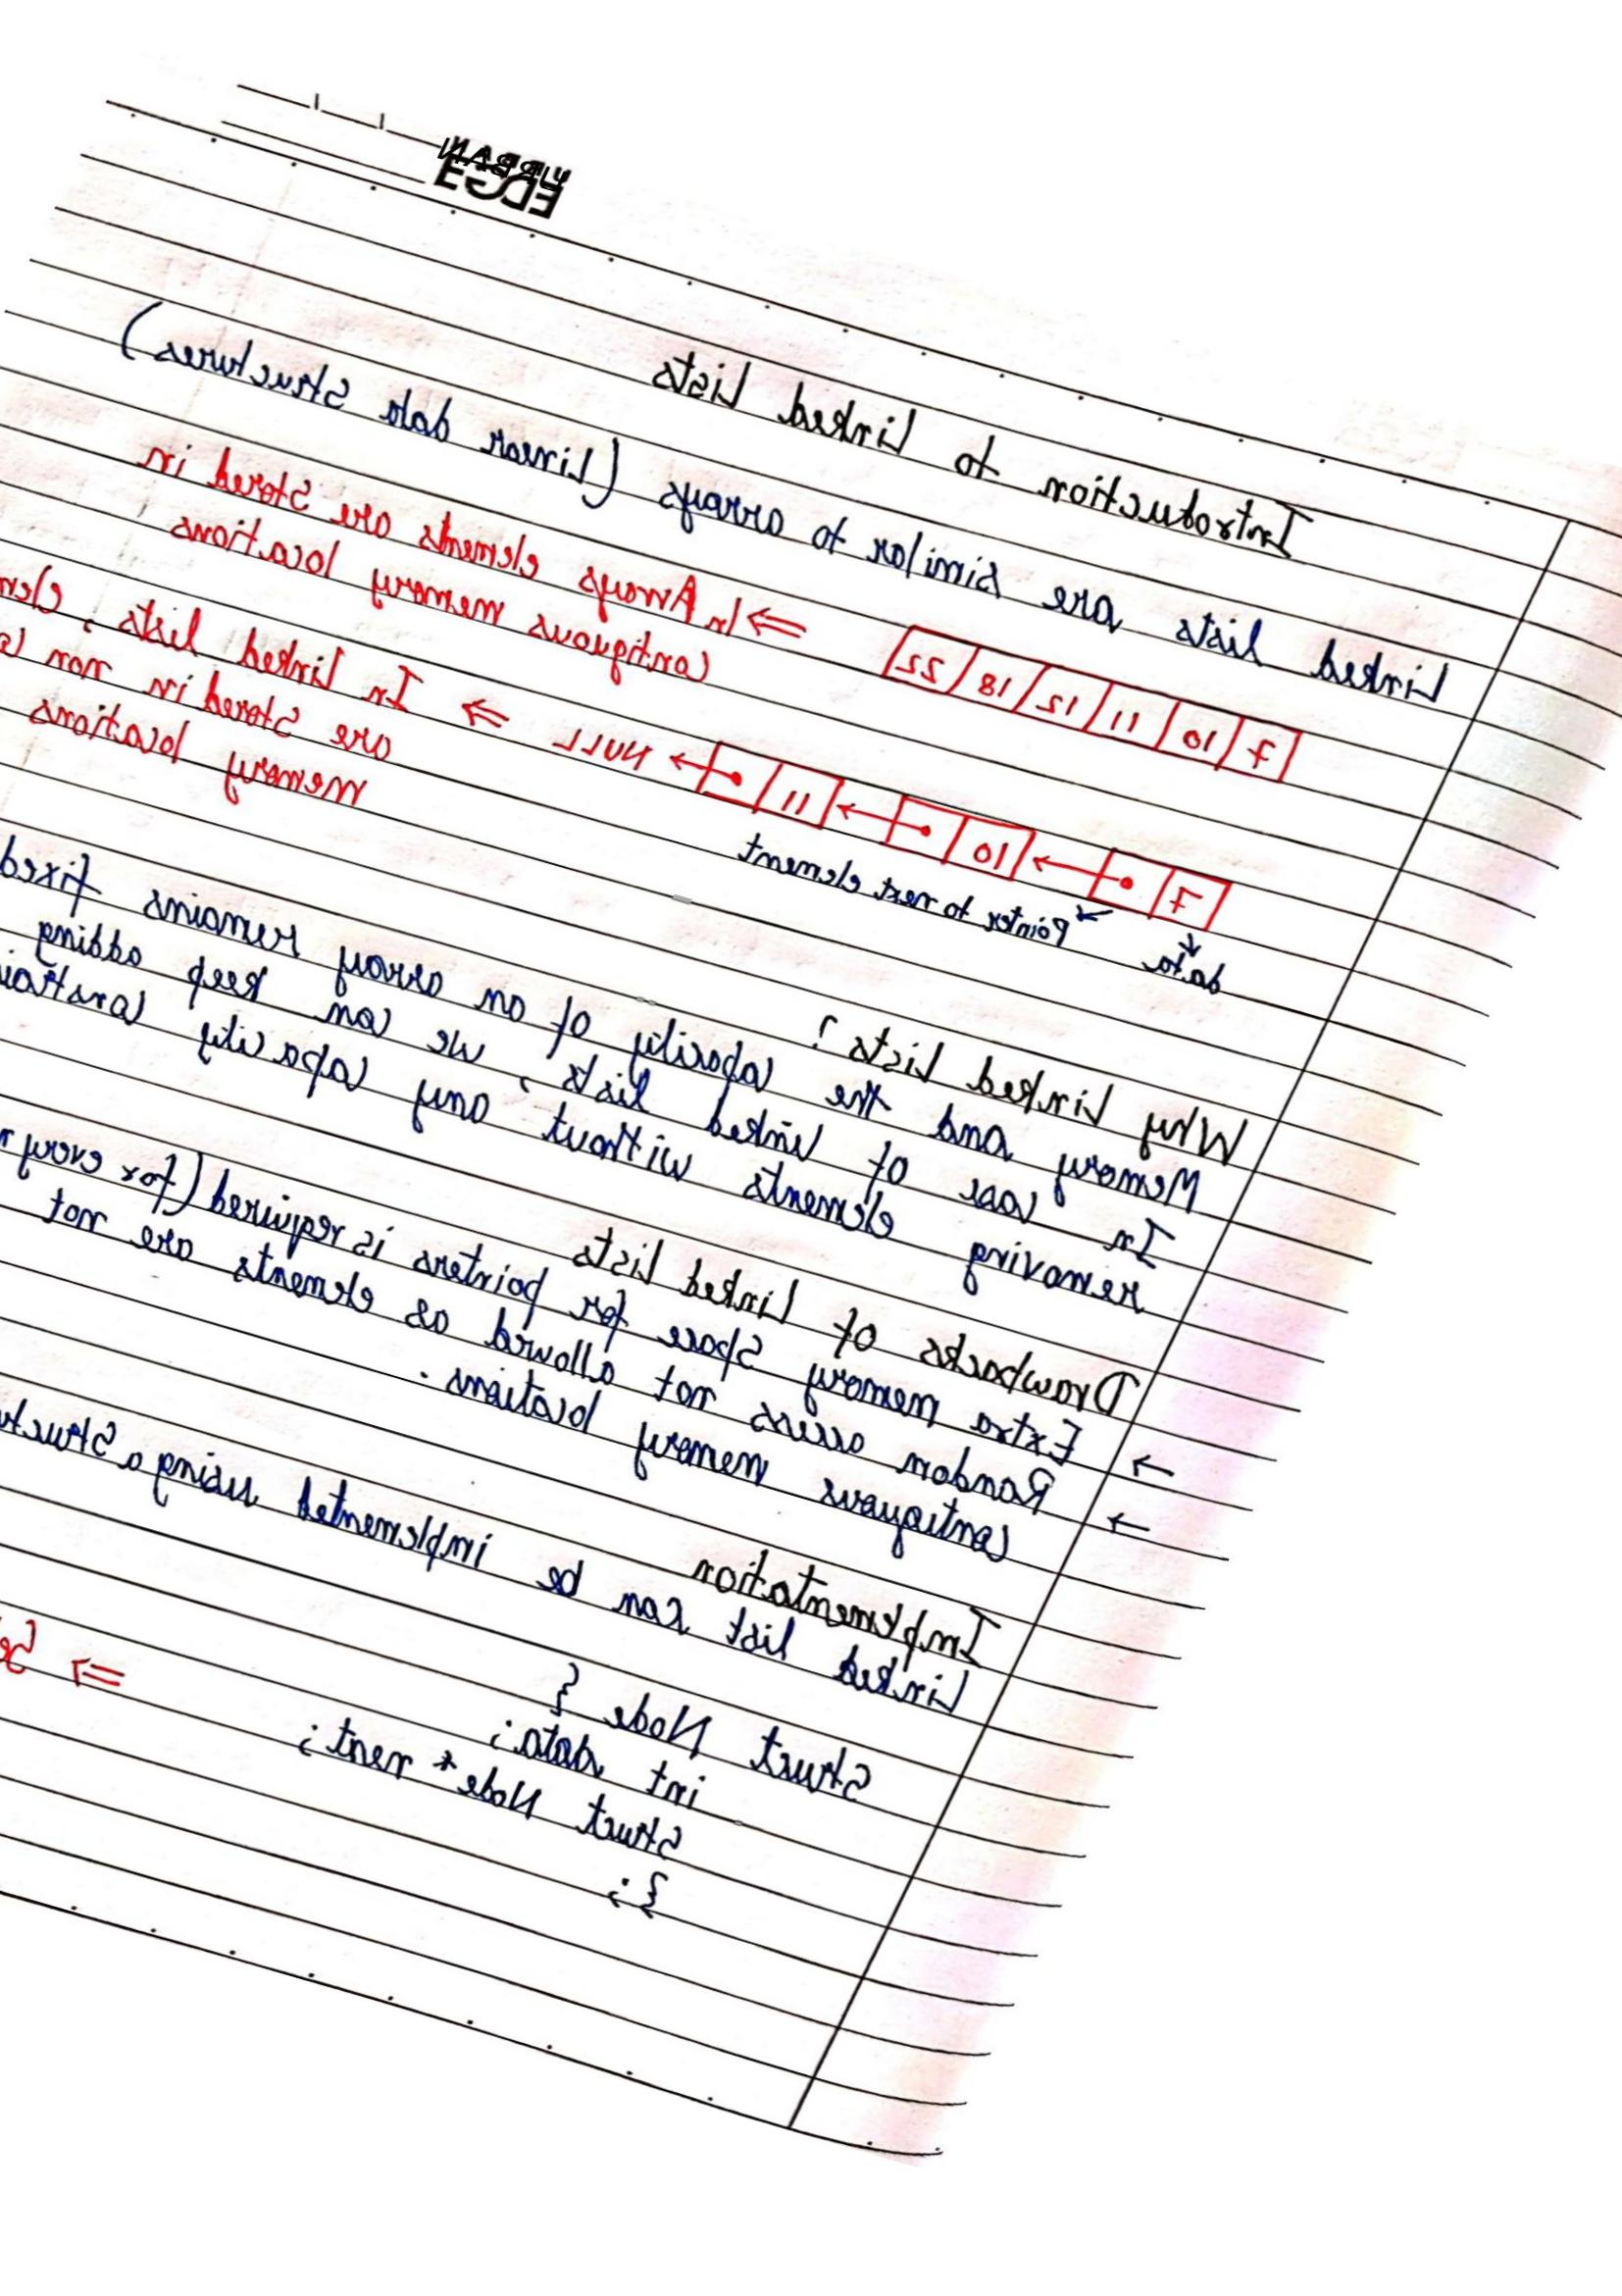 URBAN
EDGE
Introduction to Linked Lists
Linked lists are similar to arrays (Linear data structures)
7 10 11 12 18 22
⇒ In Arrays elements are stored in
contiguous memory locations
7 → 10 → 11 → NULL
⇒ In linked lists, elem
are stored in non
memory locations
data
pointer to next element
Why Linked Lists?
Memory and the capacity of an array remains fixed
In case of linked lists, we can keep adding
removing elements without any capacity constrai
Drawbacks of Linked Lists
→ Extra memory space for pointers is required (for every
→ Random access not allowed as elements are not
contiguous memory locations.
Implementation
Linked list can be implemented using a struct
Struct Node {
int data;
Struct Node* next;
⇒ Se
};